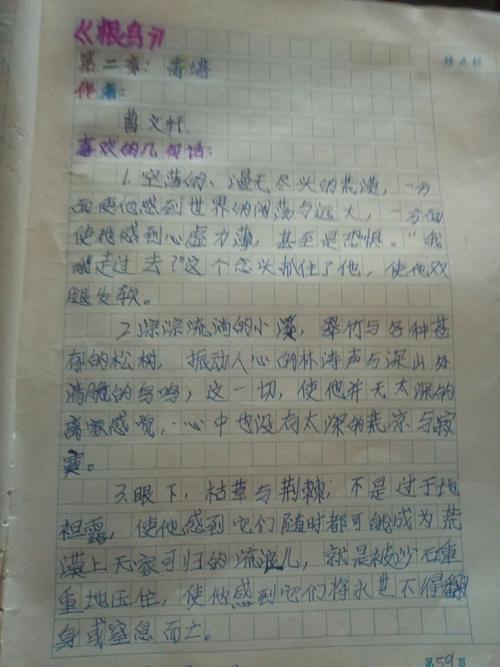 《根鸟》
第二章：青塔
作者：
曹文轩
喜欢的几句话：
1.空荡的、漫无尽头的荒漠，一方
面使他感到世界的阔荡与远大，一方面
使他感到心虚力薄，甚至是恐惧。“我
能走过去？”这个念头抓住了他，使他双
腿发软。
2.淙淙流淌的小溪，翠竹与各种甚
存的松树，振动人心的林涛声与深山处
清脆的鸟鸣，这一切，使他并无太深的
离家感觉，心中也没有太深的荒凉与寂
寞。
3.眼下，枯草与荆棘，不是过于地
袒露，使他感到它们随时都可能成为荒
漠上无家可归的流浪儿，就是被沙石重
重地压住，使他感到它们将永世不得翻
身或窒息而亡。
第59页